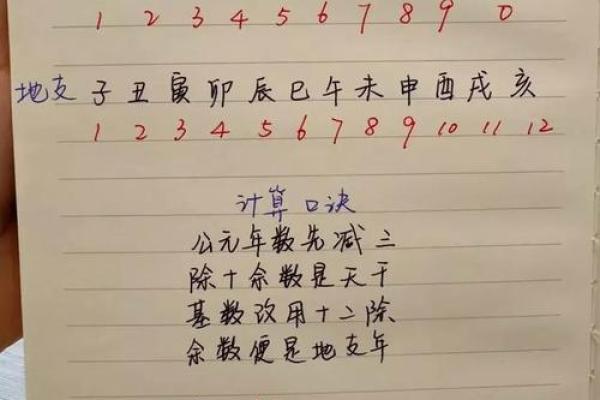 1 2 3 4 5 6 7 8 9 0
地支 子丑寅卯辰巳午未申酉戌亥
1 2 3 4 5 6 7 8 9 10 11 12
计算口诀
公元年数先减三
除十余数是天干
基数改用十二除
余数便是地支年